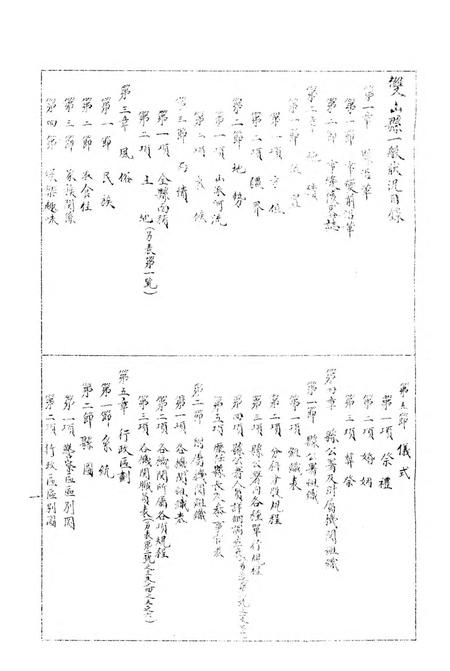 雙山縣一般狀況目錄
第一章 縣沿革
第一節 事變前沿革
第二節 事變後
第二章 地
第一節 位置
第一項 方位
第二項 疆界
第二節 地勢
第一項 山脈河流
第二項 氣候
第三節 面積
第一項 全縣面積
第二項 土地(另表第一號)
第三章 風俗
第一節 民族
第二節 衣食住
第三節 家族關係
第四節 娛樂趣味
第五節 儀式
第一項 祭禮
第二項 婚姻
第三項 葬祭
第四章 縣公署及附屬機関組織
第一節 縣公署組織
第一項 組織表
第二項 分科分股規程
第三項 縣公署內各種單行規程
第四項 縣公署人員詳細
第五項 歷任縣長
第二節 附屬機関組織
第一項 各機関組織表
第二項 各機関所屬各項規程
第三項 各機関職員表
第五章 行政區劃
第一節 系統
第二節 縣圖
第一項 警察區區別圖
第二項 行政區區別圖